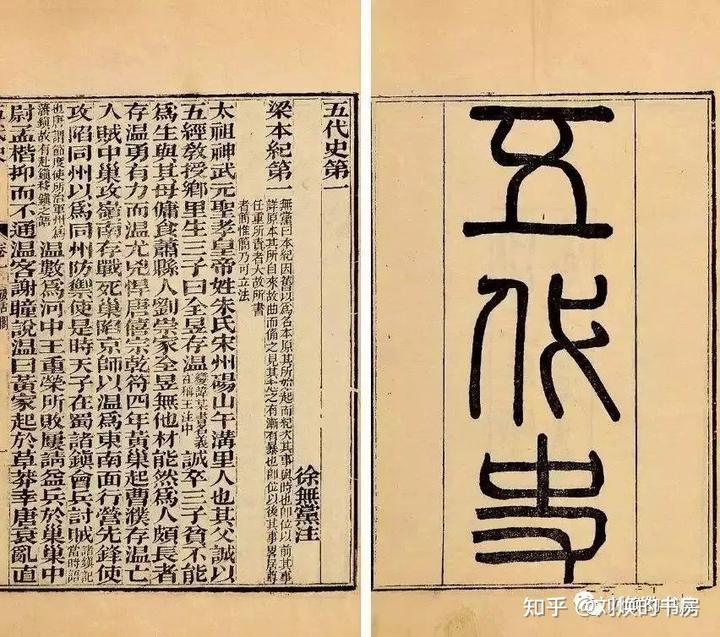 五代史
五代史第一
徐無黨注
梁本紀第一
無黨曰本紀因舊以爲名本原其所始起而紀次其事與時也卽位以前其事
詳原本其所自來故曲而備之見其起之有漸有暴也卽位以後其事畧居尊
任重所責者大故所書
者簡惟簡乃可立法
太祖神武元聖孝皇帝姓朱氏宋州碭山午溝里人也其父誠以
五經教授鄉里生三子曰全昱存温變諱某書名義在稱王注中誠卒三子貧不能
爲生與其母傭食蕭縣人劉崇家全昱無他材能然爲人頗長者
存温勇有力而温尤兇悍唐僖宗乾符四年黃巢起曹濮存温亡
入賊中巢攻嶺南存戰死巢陷京師以温爲東南面行營先鋒使
攻陷同州以爲同州防禦使是時天子在蜀諸鎮會兵討賊諸鎮記當時語
也唐謂節度使所治軍州爲藩鎮故有赴鎮移鎮之語温數爲河中王重榮所敗屢請益兵於巢巢中
尉孟楷抑而不通温客謝瞳說温曰黃家起於草莽幸唐衰亂直
知乎 @刘焕的书房